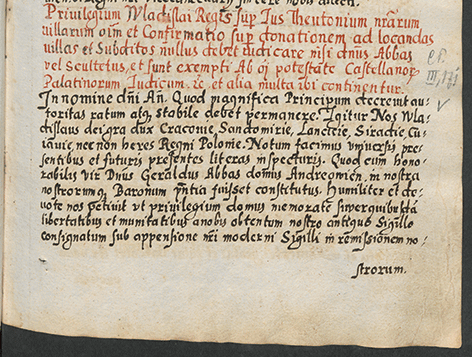 Privilegium Wladislai Regis sup Ius Theutonium nrarum
villarum oim et Confirmatio sup donationem ad locandas
villas et Subditos nullus debet iudicare nisi dnus Abbas
vel Scultetus, et sunt exempti Ab oi potestate Castellanor
Palatinorum Iudicum, &c. et alia multa ibi continentur.
In nomine dni Am. Quod magnifica Principum decrevit au-
toritas ratum atq stabile debet permanere. Igitur Nos Wla-
dislaus dei gra dux Cracovie, Sandomirie, Lancicie, Siradie, Cu-
iavie, nec non heres Regni Polonie. Notum facimus universis pre-
sentibus et futuris presentes literas inspecturis. Quod cum Hono-
rabilis vir Dnus Geraldus Abbas domus Andreowien, in nostra
nostrorumq Baronum pntia fuisset constitutus. Humiliter et de-
vote nos petivit ut privilegium domus memorate super quibusda
libertatibus et munitatibus a nobis obtentum nostro antiquo Sigillo
consignatum sub appensione nri moderni Sigilli in remissionem no-
strorum.
III, 171